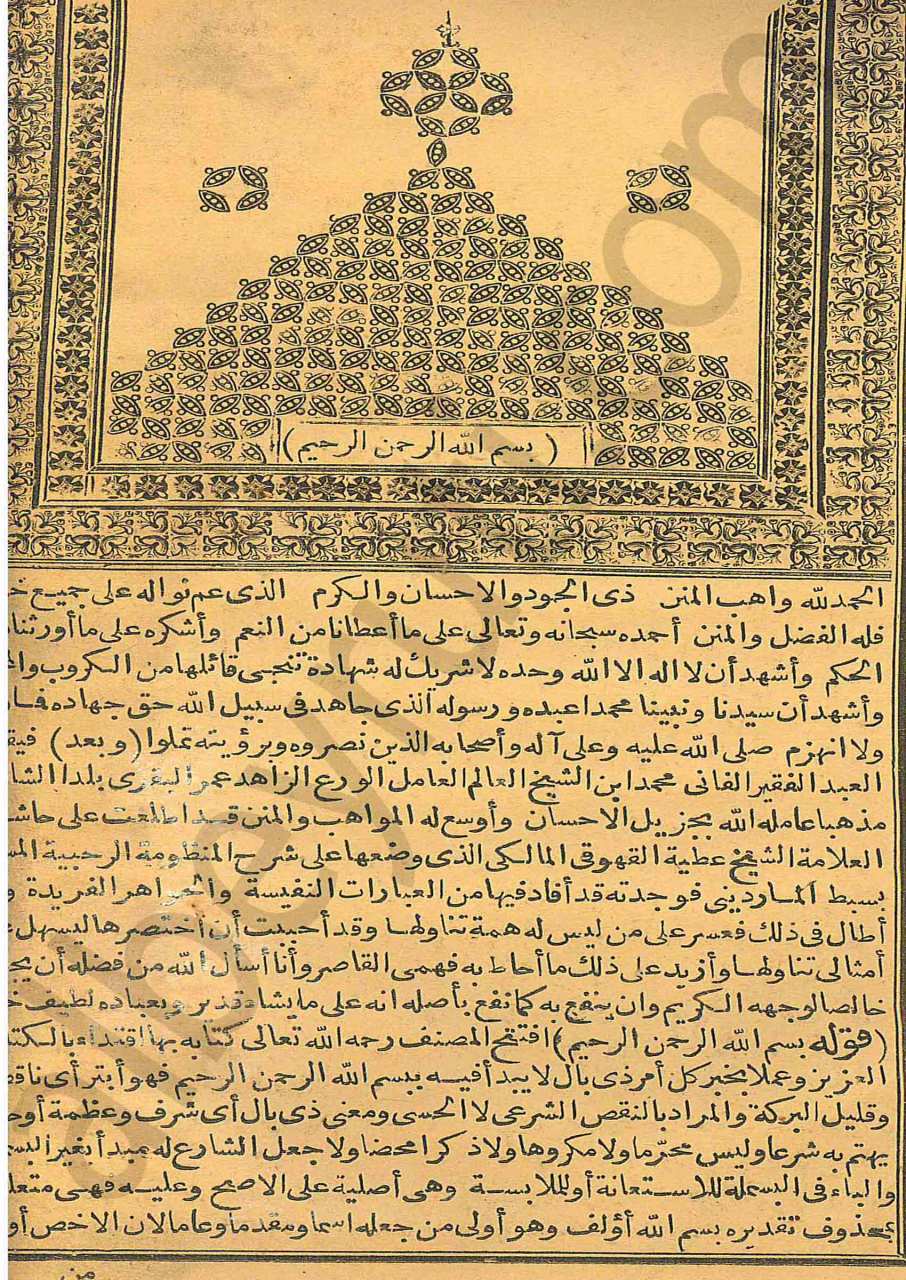 ( بسم الله الرحمن الرحيم )
الحمد لله واهب المنن ذى الجود والاحسان والكرم الذى عم نواله على جميع
فله الفضل والمنن أحمده سبحانه وتعالى على ما أعطانا من النعم وأشكره على ما أورثنا
الحكم وأشهد أن لا اله الا الله وحده لا شريك له شهادة تنجى قائلها من الكروب
وأشهد أن سيدنا ونبينا محمدا عبده ورسوله الذى جاهد فى سبيل الله حق جهاده
ولا انهزم صلى الله عليه وعلى آله وأصحابه الذين نصروه وبرؤيته تملوا (وبعد)
العبد الفقير الفانى محمد ابن الشيخ العالم العامل الورع الزاهد عمر البقرى بلدا
مذهبا عامله الله بجزيل الاحسان وأوسع له المواهب والمنن قد اطلعت على
العلامة الشيخ عطية القهوقى المالكى الذى وضعها على شرح المنظومة الرحبية
بسبط الماردينى فوجدته قد أفاد فيها من العبارات النفيسة والجواهر الفريدة
أطال فى ذلك فعسر على من ليس له همة تناولها وقد أحببت أن أختصرها ليسهل
أمثالى تناولها وأزيد على ذلك ما أحاط به فهمى القاصر وأنا أسأل الله من فضله أن
خالصا لوجهه الكريم وان ينفع به كما نفع بأصله انه على ما يشاء قدير وبعباده لطيف
(قوله بسم الله الرحمن الرحيم) افتتح المصنف رحمه الله تعالى كتابه بها اقتداء
العزيز وعملا بخبر كل أمر ذى بال لا يبدأ فيه ببسم الله الرحمن الرحيم فهو أبتر أى
وقليل البركة والمراد بالنقص الشرعى لا الحسى ومعنى ذى بال أى شرف وعظمة
يهتم به شرعا وليس محرّما ولا مكروها ولا ذكرا محضا ولا جعل الشارع له مبدأ بغير
والباء فى البسملة للاستعانة أو للملابسة وهى أصلية على الاصح وعليه فهى
بمحذوف تقديره بسم الله أؤلف وهو أولى من جعله اسما ومقدما وعاما لان الاخص
من